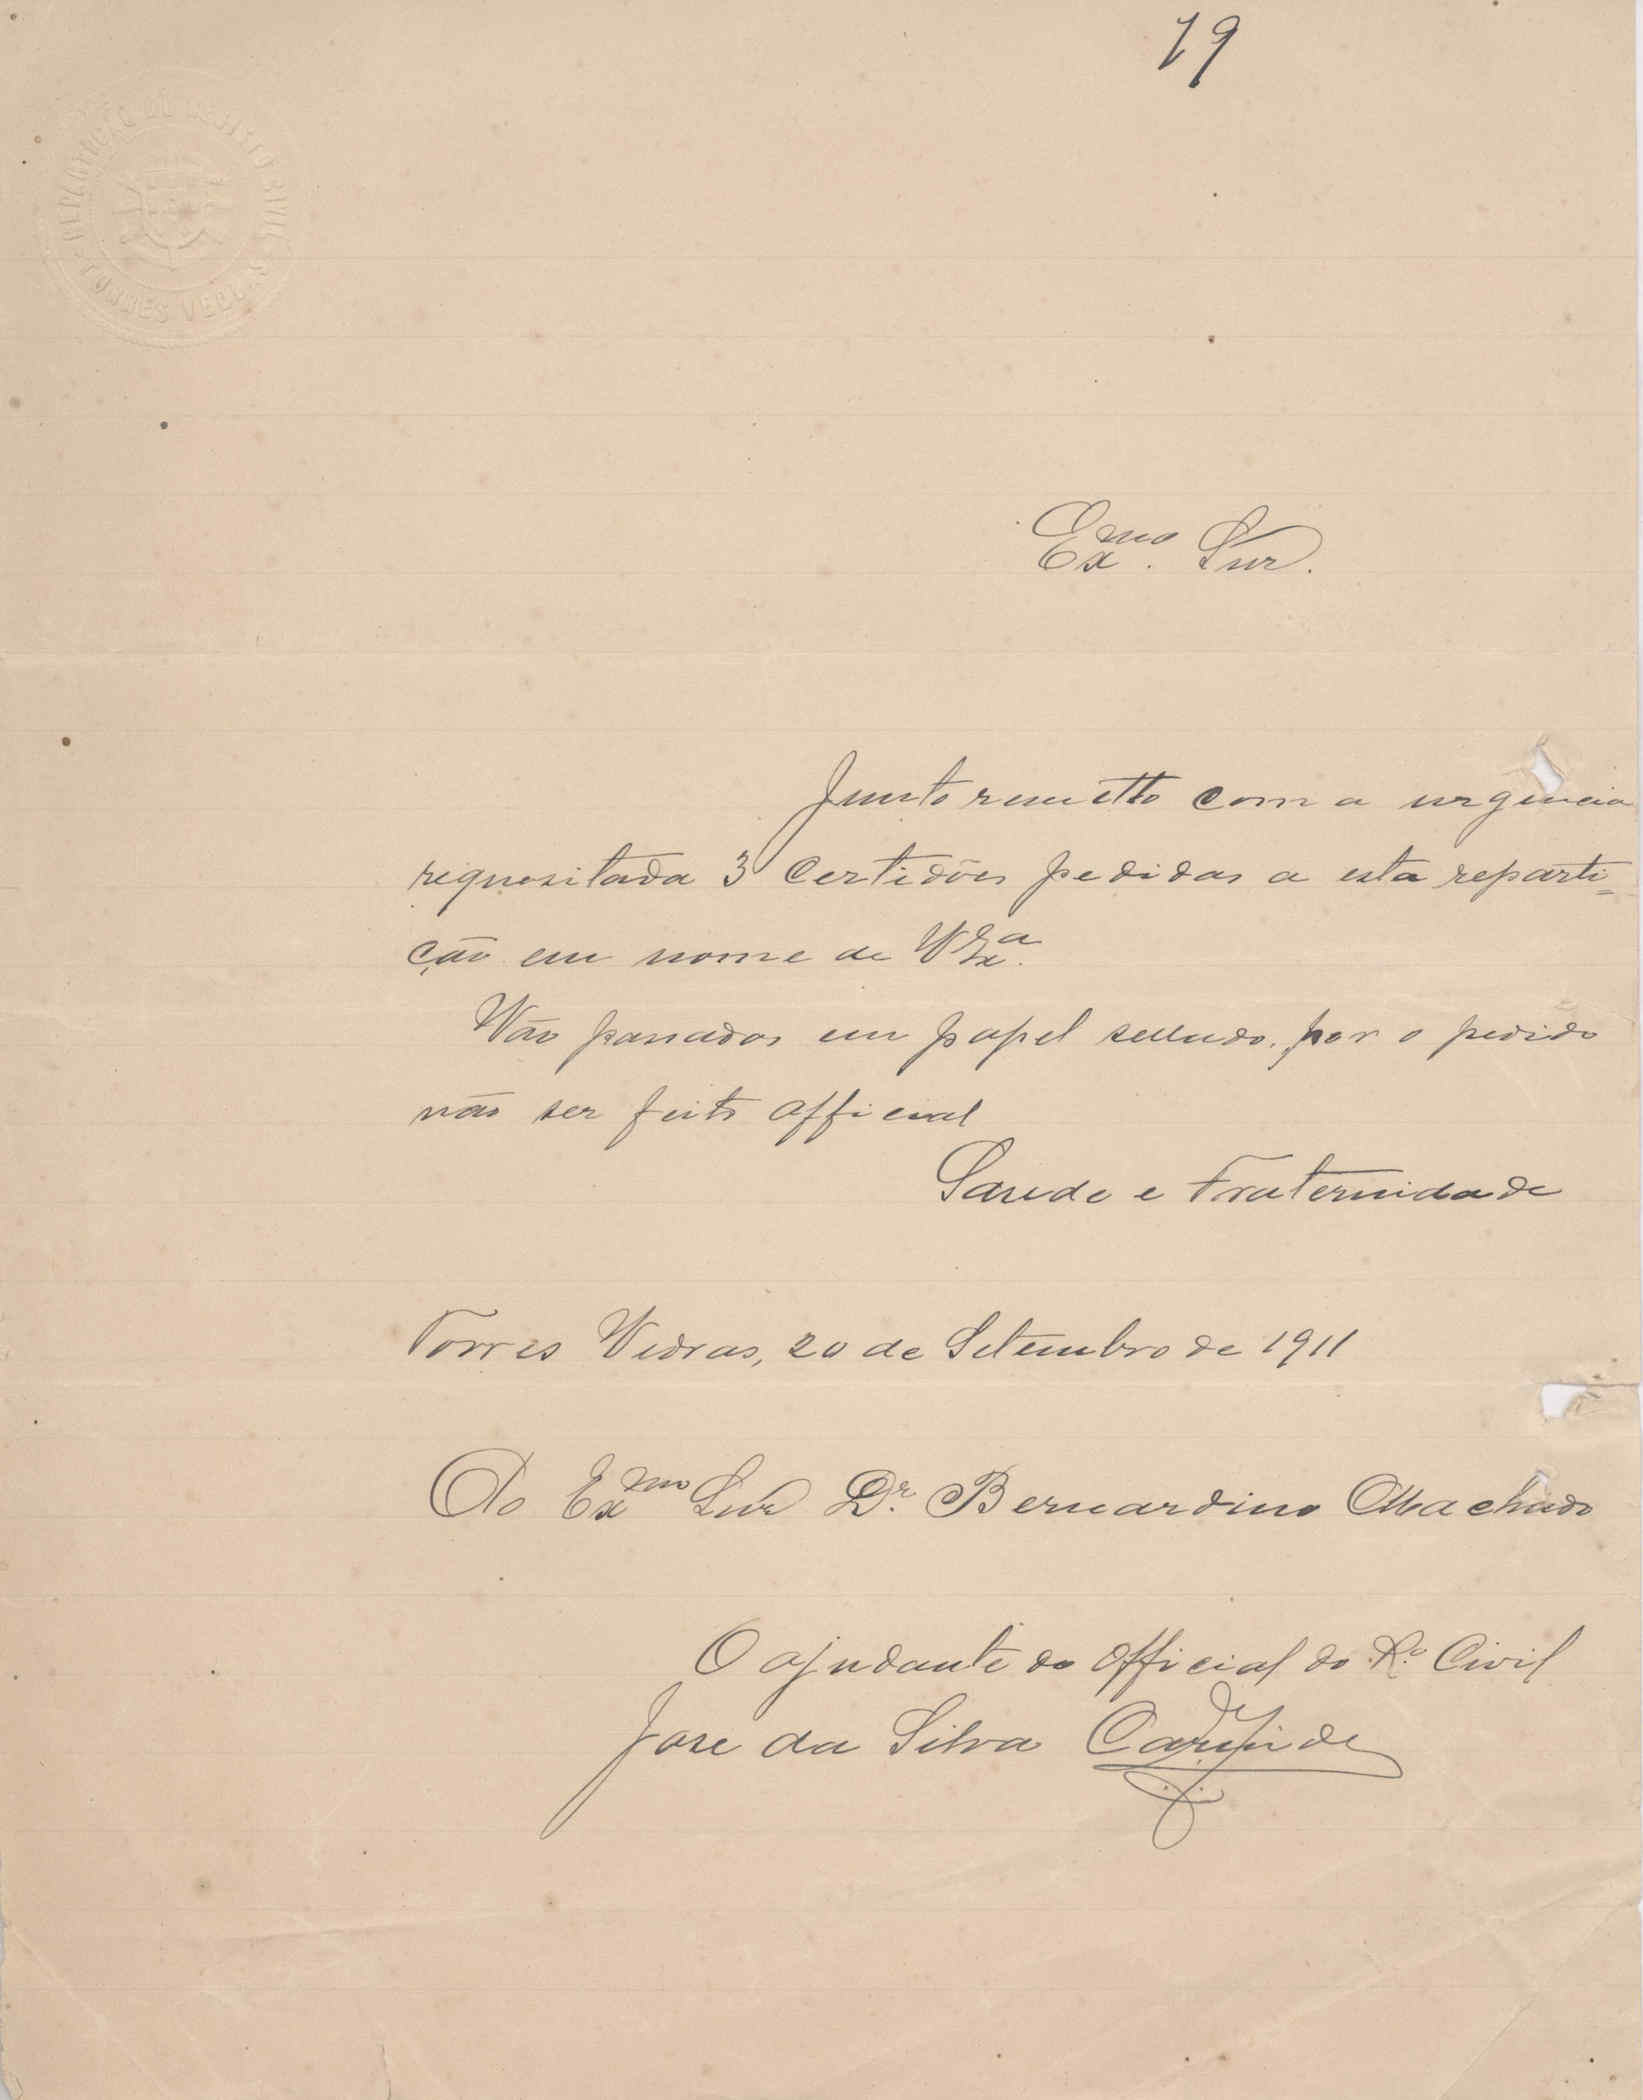 19
REPARTIÇÃO DO REGISTO CIVIL
TORRES VEDRAS
Exmo. Snr.
Junto remetto com a urgencia
requesitada 3 certidões pedidas a esta reparti=
ção em nome de V Exa.
Vão passados em papel sellado, por o pedido
não ser feito official
Saude e Fraternidade
Torres Vedras, 20 de Setembro de 1911
Ao Exmo Snr Dr. Bernardino Machado
O ajudante do official do Ro. Civil
Jose da Silva